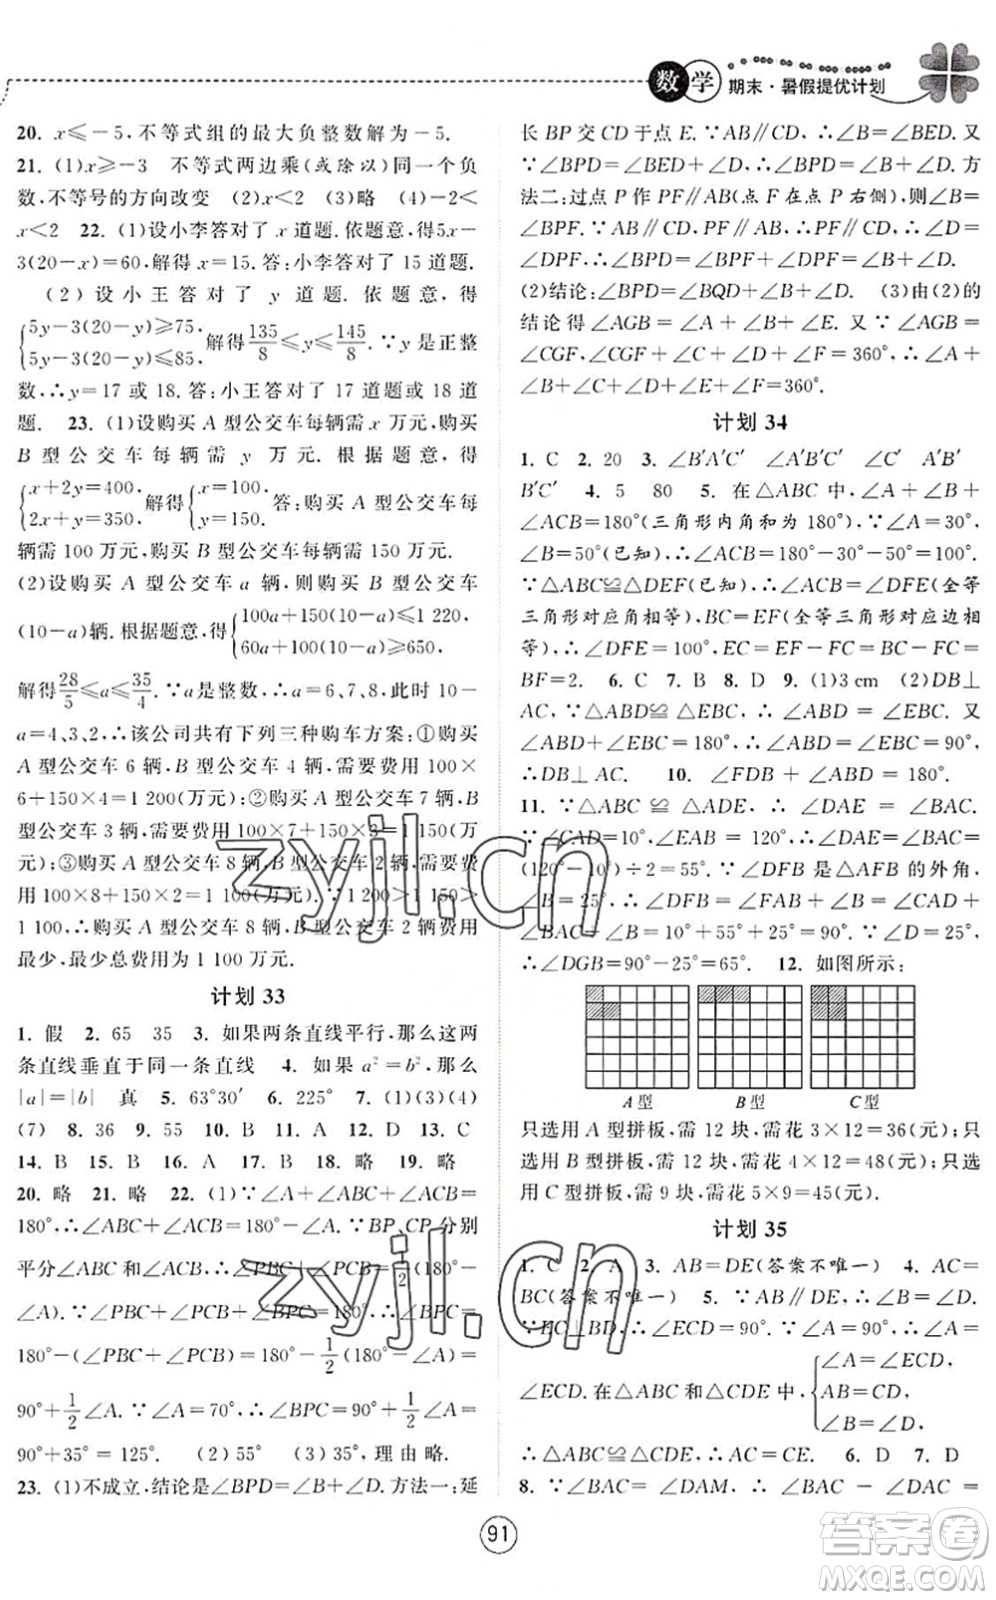 数学 期末·暑假提优计划
20. x≤-5,不等式组的最大负整数解为-5.
21. (1)x≥-3 不等式两边乘(或除以)同一个负
数,不等号的方向改变 (2)x<2 (3)略 (4)-2<
x<2 22. (1)设小李答对了 x 道题.依题意,得5x-
3(20-x)=60,解得 x=15.答:小李答对了 15 道题.
(2) 设 小 王 答 对 了 y 道 题. 依 题 意, 得
{5y-3(20-y)≥75, 5y-3(20-y)≤85, 解得135/8≤y≤145/8.∵y是正整
数,∴y=17 或 18.答:小王答对了 17 道题或 18 道
题. 23. (1)设购买 A 型公交车每辆需 x 万元,购买
B 型公交车每辆需 y 万元. 根据题意, 得
{x+2y=400, 2x+y=350, 解得{x=100, y=150. 答:购买 A 型公交车每
辆需 100 万元,购买 B 型公交车每辆需 150 万元.
(2)设购买 A 型公交车 a 辆,则购买 B 型公交车
(10-a)辆.根据题意,得{100a+150(10-a)≤1 220, 60a+100(10-a)≥650,
解得28/5≤a≤35/4.∵a是整数,∴a=6、7、8,此时 10-
a=4、3、2,∴该公司共有下列三种购车方案:①购买
A 型公交车 6 辆,购买 B 型公交车 4 辆,需要费用 100×
6+150×4=1 200(万元);②购买 A 型公交车 7 辆,购买 B
型公交车 3 辆,需要费用 100×7+150×3=1 150(万
元);③购买 A 型公交车 8 辆,购买 B 型公交车 2 辆,需要费
用 100×8+150×2=1 100(万元).∵1 200>1 150>
1 100,∴购买 A 型公交车 8 辆,B 型公交车 2 辆费用
最少,最少总费用为 1 100 万元.
计划 33
1. 假 2. 65 35 3. 如果两条直线平行,那么这两
条直线垂直于同一条直线 4. 如果 a²=b²,那么
|a|=|b| 真 5. 63°30′ 6. 225° 7. (1)(3)(4)
(7) 8. 36 9. 55 10. B 11. D 12. D 13. C
14. B 15. B 16. A 17. B 18. 略 19. 略
20. 略 21. 略 22. (1)∵∠A+∠ABC+∠ACB=
180°,∴∠ABC+∠ACB=180°-∠A.∵BP、CP 分别
平分∠ABC 和∠ACB,∴∠PBC+∠PCB=1/2(180°-
∠A).∵∠PBC+∠PCB+∠BPC=180°,∴∠BPC=
180°-(∠PBC+∠PCB)=180°-1/2(180°-∠A)=
90°+1/2∠A.∵∠A=70°,∴∠BPC=90°+1/2∠A=
90°+35°=125°. (2)55° (3)35° 理由略.
23. (1)不成立,结论是∠BPD=∠B+∠D.方法一:延
长 BP 交 CD 于点 E.∵AB∥CD,∴∠B=∠BED.又
∠BPD=∠BED+∠D,∴∠BPD=∠B+∠D.方
法二:过点 P 作 PF∥AB(点 F 在点 P 右侧),则∠B=
∠BPF.∵AB∥CD,PF∥AB,∴PF∥CD,∴∠D=
∠DPF,∴∠BPD=∠BPF+∠DPF=∠B+∠D.
(2)结论:∠BPD=∠B+∠BQD+∠D. (3)由(2)的
结论得∠AGB=∠A+∠B+∠E.又∵∠AGB=
∠CGF,∠CGF+∠C+∠D+∠F=360°,∴∠A+
∠B+∠C+∠D+∠E+∠F=360°.
计划 34
1. C 2. 20 3. ∠B′A′C′ ∠A′B′C′ ∠C′ A′B′
B′C′ 4. 5 80 5. 在△ABC 中,∠A+∠B+
∠ACB=180°(三角形内角和为 180°),∵∠A=30°,
∠B=50°(已知),∴∠ACB=180°-30°-50°=100°.
∵△ABC≌△DEF(已知),∴∠ACB=∠DFE(全等
三角形对应角相等),BC=EF(全等三角形对应边相
等),∴∠DFE=100°,EC=EF-CF=BC-CF=
BF=2. 6. C 7. B 8. D 9. (1)3 cm (2)DB⊥
AC,∵△ABD≌△EBC,∴∠ABD=∠EBC.又
∠ABD+∠EBC=180°,∴∠ABD=∠EBC=90°,
∴DB⊥AC. 10. ∠FDB+∠ABD=180°.
11. ∵△ABC≌△ADE,∴∠DAE=∠BAC.
∵∠CAD=10°,∠EAB=120°,∴∠DAE=∠BAC=
(120°-10°)÷2=55°.∵∠DFB 是△AFB 的外角,
∠B=25°,∴∠DFB=∠FAB+∠B=∠CAD+
∠BAC+∠B=10°+55°+25°=90°.∵∠D=25°,
∴∠DGB=90°-25°=65°. 12. 如图所示:
A型 B型 C型
只选用 A 型拼板,需 12 块,需花 3×12=36(元);只
选用 B 型拼板,需 12 块,需花 4×12=48(元);只选
用 C 型拼板,需 9 块,需花 5×9=45(元).
计划 35
1. C 2. A 3. AB=DE(答案不唯一) 4. AC=
BC(答案不唯一) 5. ∵AB∥DE,∴∠B=∠D.
∵EC⊥BD,∴∠ECD=90°.∵∠A=90°,∴∠A=
∠ECD.在△ABC 和△CDE 中,{∠A=∠ECD, AB=CD, ∠B=∠D,
∴△ABC≌△CDE,∴AC=CE. 6. D 7. D
8. ∵∠BAC=∠DAM,∴∠BAC-∠DAC=
91
zyjl.cn
zyjl.cn
答案圈
MXQE.COM